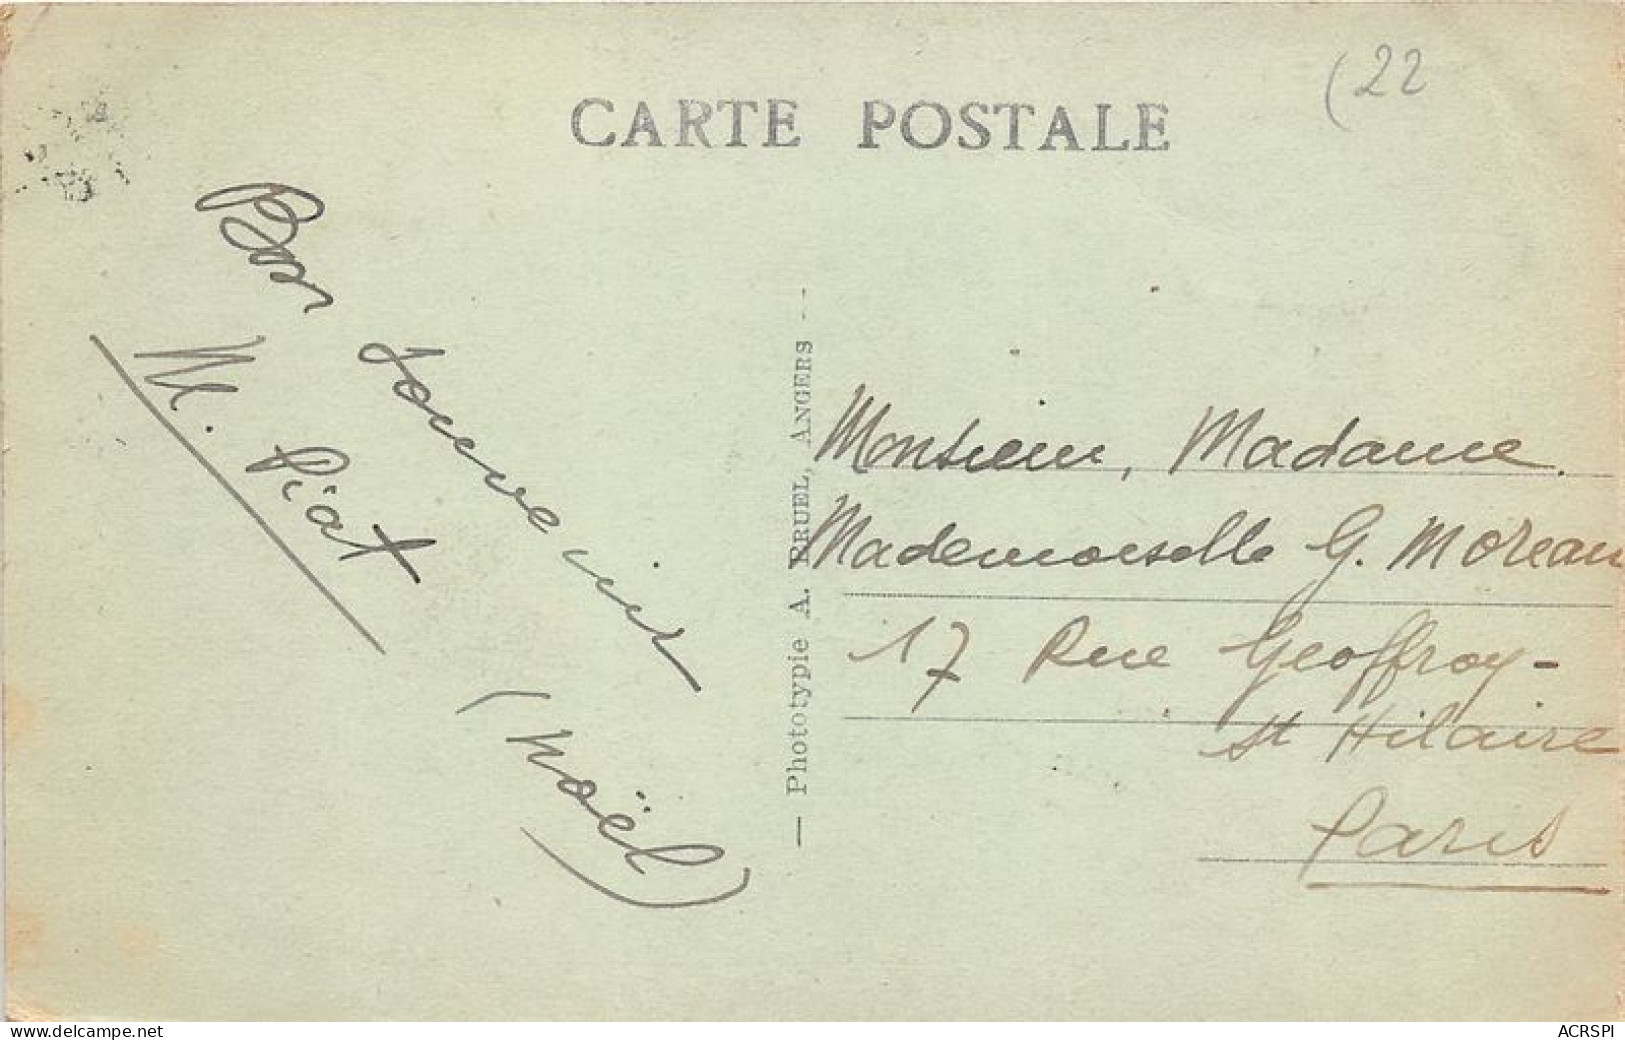 (22
CARTE POSTALE
Bon
souvenir
M. Piat
(Noël)
— Phototypie A. BRUEL, ANGERS —
Monsieur, Madame
Mademoiselle G. Moreau
17 Rue Geoffroy-
St Hilaire
Paris
www.delcampe.net
ACRSPI